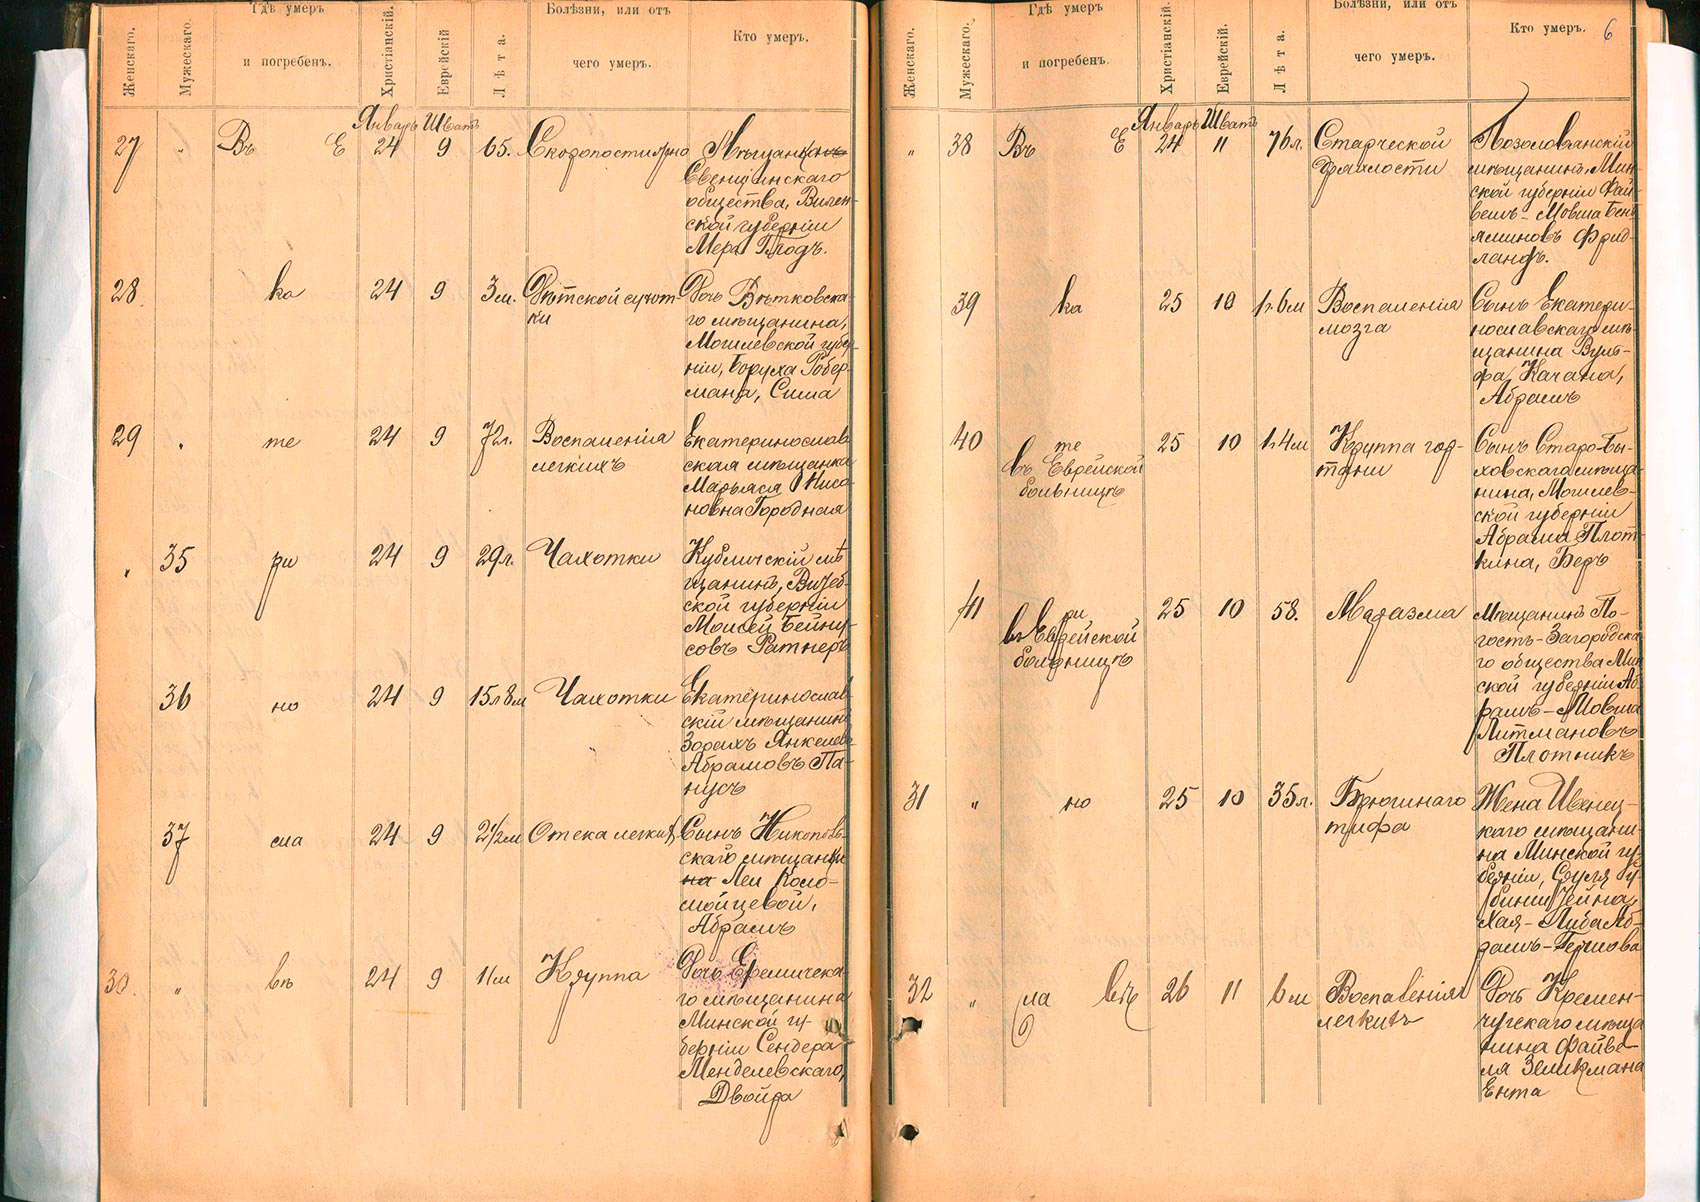 Женскаго.
Мужескаго.
Гдѣ умеръ
и погребенъ.
Христіанскій.
Еврейскій
Лѣта.
Болѣзни, или отъ
чего умеръ.
Кто умеръ.
Январь Шватъ
27 „ Въ Е 24 9 65. Скоропостижно
Свенцянскаго
общества, Вилен-
ской губерніи
Мера
28 ка 24 9 3м. Дѣтской сухот-
ки
Дочь Вѣтковска-
го мѣщанина,
Могилевской губер-
ніи, Боруха Робер-
мана, Сима
29 „ те 24 9 72л. Воспаленія
легкихъ
Екатеринослав
ская мѣщанка
Марьяся Нисо-
новна Городная
„ 35 ри 24 9 29л. Чахотки
Кубличскій мѣ
щанинъ, Витеб-
ской губерніи
Моисей Бейну-
совъ Ратнеръ
36 но 24 9 15л 8м Чахотки
Екатеринослав
скій мѣщанинъ
Зорахъ Янкелевъ
Абрамовъ Па-
нусъ
37 сла 24 9 2½м Отека легкихъ
Сынъ Никополь-
скаго мѣщани
на Леи Коло-
мойцевой,
Абрамъ
30. „ въ 24 9 11м Круппа
Дочь Еремичска-
го мѣщанина
Минской гу-
берніи Сендера
Менделевскаго,
Двойра
Женскаго.
Мужескаго.
Гдѣ умеръ
и погребенъ.
Христіанскій.
Еврейскій.
Лѣта.
Болѣзни, или отъ
чего умеръ.
Кто умеръ. 6
Январь Шватъ
„ 38 Въ Е 24 11 76л. Старческой
дряхлости
мѣщанинъ, Мин-
ской губерніи Фай-
вешъ-Мовша Бень
яминовъ Фрид-
ландъ.
39 ка 25 10 1г. 6м Воспаленія
мозга
Сынъ Екатери-
нославскаго мѣ-
щанина Вуль-
фа Качана,
Абрамъ
40 те 25 10 1г. 4м Круппа гор-
тани
въ Еврейской
больницѣ
Сынъ Старо-Бы-
ховскаго мѣща-
нина, Могилев-
ской губерніи
Абрама Плот-
кина, Беръ
41 ри 25 10 58. Маразма
въ Еврейской
больницѣ
Мѣщанинъ По-
гостъ-Загородска-
го общества Мин
ской губерніи Аб-
рамъ-Мовша
Литмановъ
Плотникъ
31 „ но 25 10 35л. Брюшнаго
тифа
Жена Ивенец-
каго мѣщани-
на Минской гу-
берніи,
Хая-Либа Аб-
рамъ-Гершова
32 „ сла въ 26 11 6м Воспаленія
легкихъ
Дочь Кремен-
чугскаго мѣща
нина Файве-
ля Зеликмана
Ента